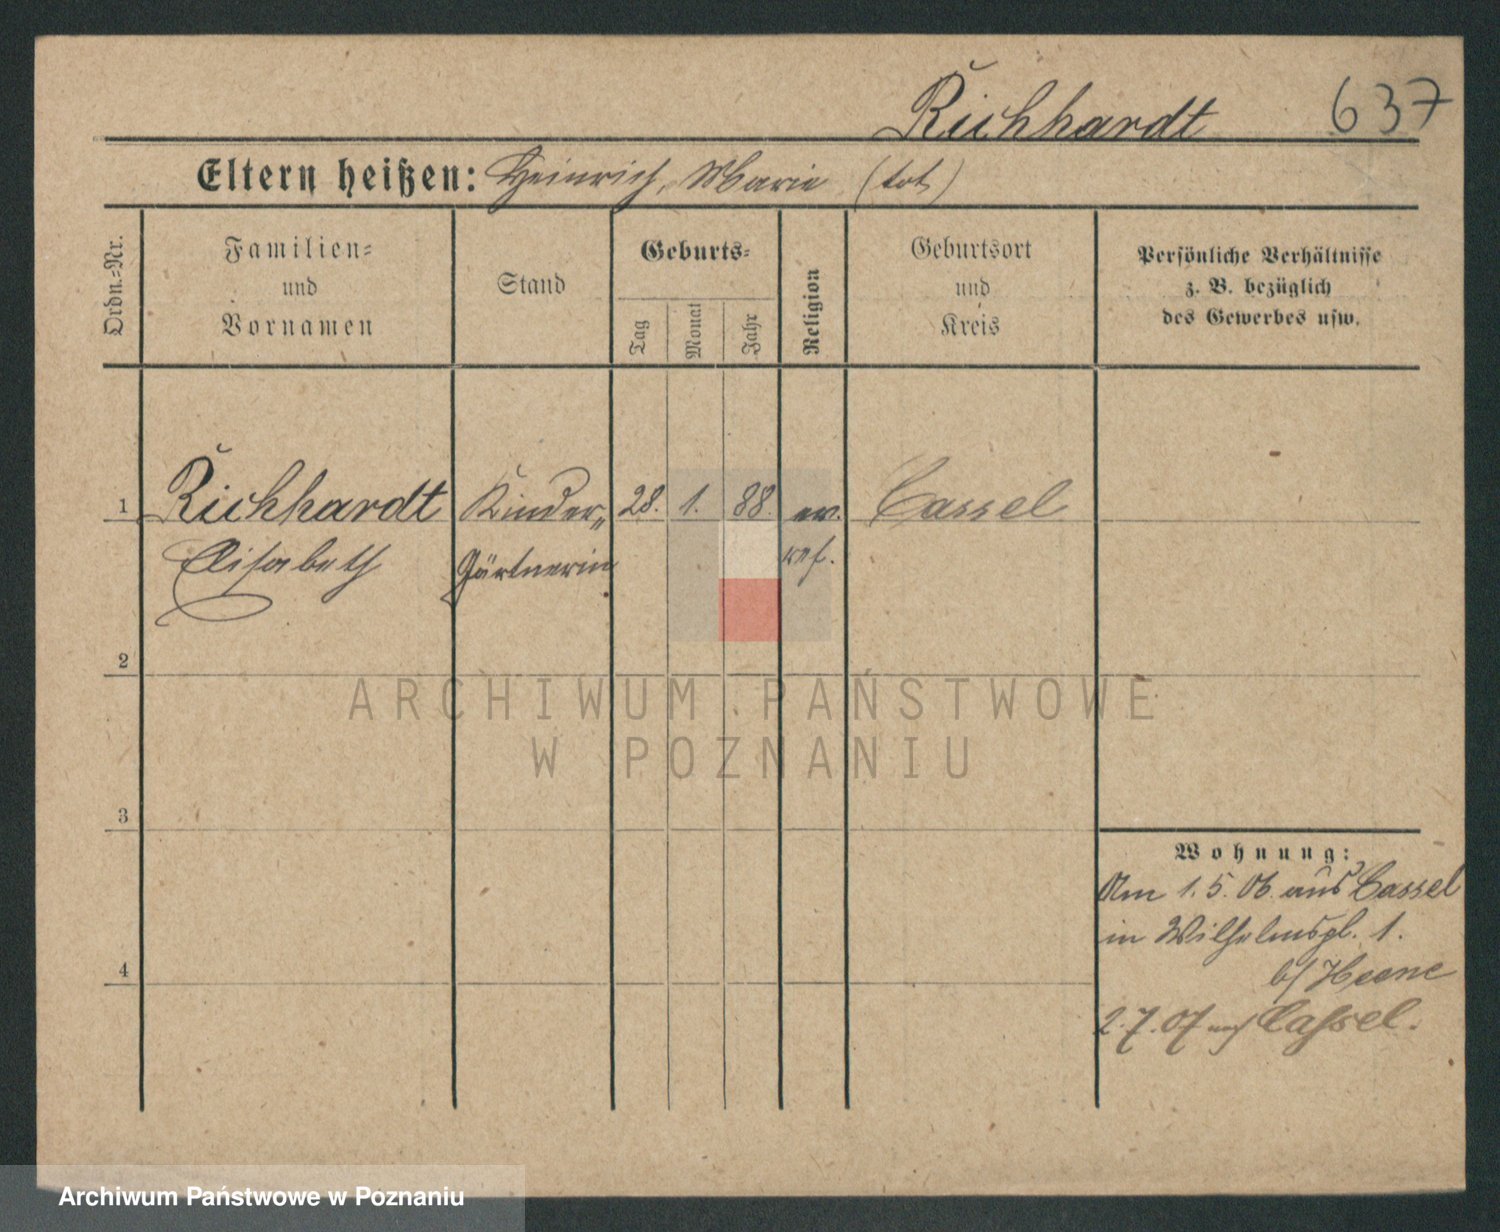 Richhardt 637
Eltern heißen: Heinrich, Marie (tot)
Ordn.-Nr.
Familien-
und
Vornamen
Stand
Geburts-
Tag
Monat
Jahr
Religion
Geburtsort
und
Kreis
Persönliche Verhältnisse
z. B. bezüglich
des Gewerbes usw.
1 Richhardt Kinder- 28. 1. 88. ev. Cassel
Elisabeth Gärtnerin ref.
2
ARCHIWUM PAŃSTWOWE
W POZNANIU
3
Wohnung:
Am 1.5.06. aus Cassel
in Wilhelmspl. 1.
4
b/ Heene
2.7.07 nach Cassel.
Archiwum Państwowe w Poznaniu